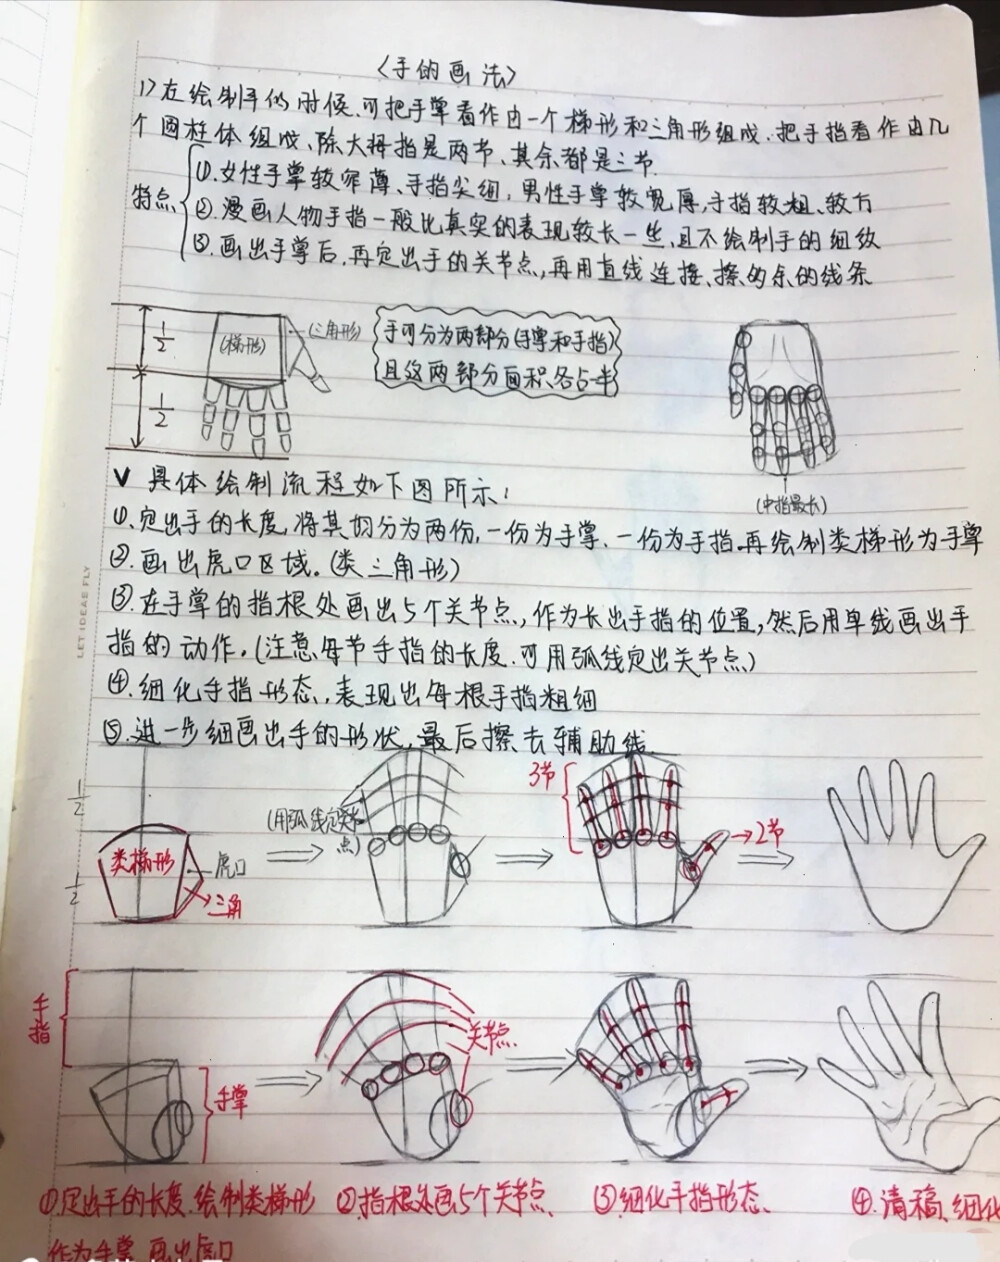 〈手的画法〉
1>在绘制手的时候.可把手掌看作由一个梯形和三角形组成.把手指看作由几
个圆柱体组成、除大拇指是两节、其余都是三节.
特点
①.女性手掌较窄薄、手指尖细，男性手掌较宽厚,手指较粗、较方
②.漫画人物手指一般比真实的表现较长一些、且不绘制手的细纹
③.画出手掌后.再定出手的关节点,再用直线连接、擦的余的线条
1/2
(梯形)
(三角形)
手可分为两部分(手掌和手指)
且这两部分面积各占一半
1/2
(中指最长)
V 具体绘制流程如下图所示:
①.定出手的长度,将其均分为两份,一份为手掌、一份为手指.再绘制类梯形为手掌
②.画出虎口区域。(类三角形)
③.在手掌的指根处画出5个关节点,作为长出手指的位置,然后用单线画出手
指的动作.(注意每节手指的长度.可用弧线定出关节点)
④.细化手指形态,表现出每根手指粗细
⑤.进一步细画出手的形状,最后擦去辅助线.
LET IDEAS FLY
1/2
1/2
类梯形
虎口
三角
(用弧线定关节
点)
3节
2节
手指
手掌
关节点.
①.定出手的长度.绘制类梯形
②.指根处画5个关节点、
③.细化手指形态、
④.清稿、细化
作为手掌.画出虎口